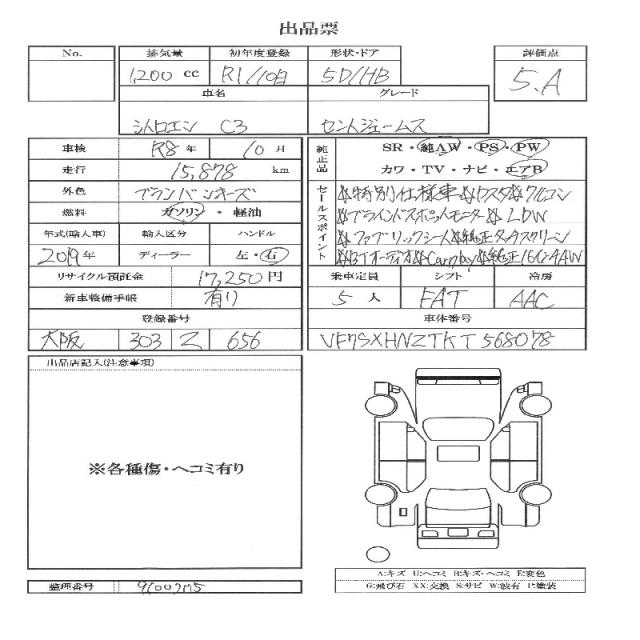 出品票
No. 排気量 初年度登録 形状・ドア 評価点
1,200 cc R1/10月 5D/HB 5.A
車名 グレード
シトロエン C3 セントジェームス
車検 R8年 10月
走行 15,878 km
外色 ブランバンキーズ
燃料 ガソリン・軽油
年式(輸入車) 輸入区分 ハンドル
2019年 ディーラー 左・右
リサイクル預託金 17,250円
新車整備手帳 有り
登録番号
大阪 303 Z 656
純正品 SR・純AW・PS・PW
カワ・TV・ナビ・エアB
セールスポイント
特別仕様車 クルコン
ブラインドスポットモニター LDW
ファブリックシート 純正タッチスクリーン
BTオーディオ Carplay 純正16インAW
乗車定員 シフト 冷房
5人 FAT AAC
車体番号
VF7SXHNZTKT568078
出品店記入(注意事項)
※各種傷・ヘコミ有り
整理番号
A:キズ U:ヘコミ B:キズ・ヘコミ E:変色
G:飛び石 XX:交換 S:サビ W:波有 P:塗装